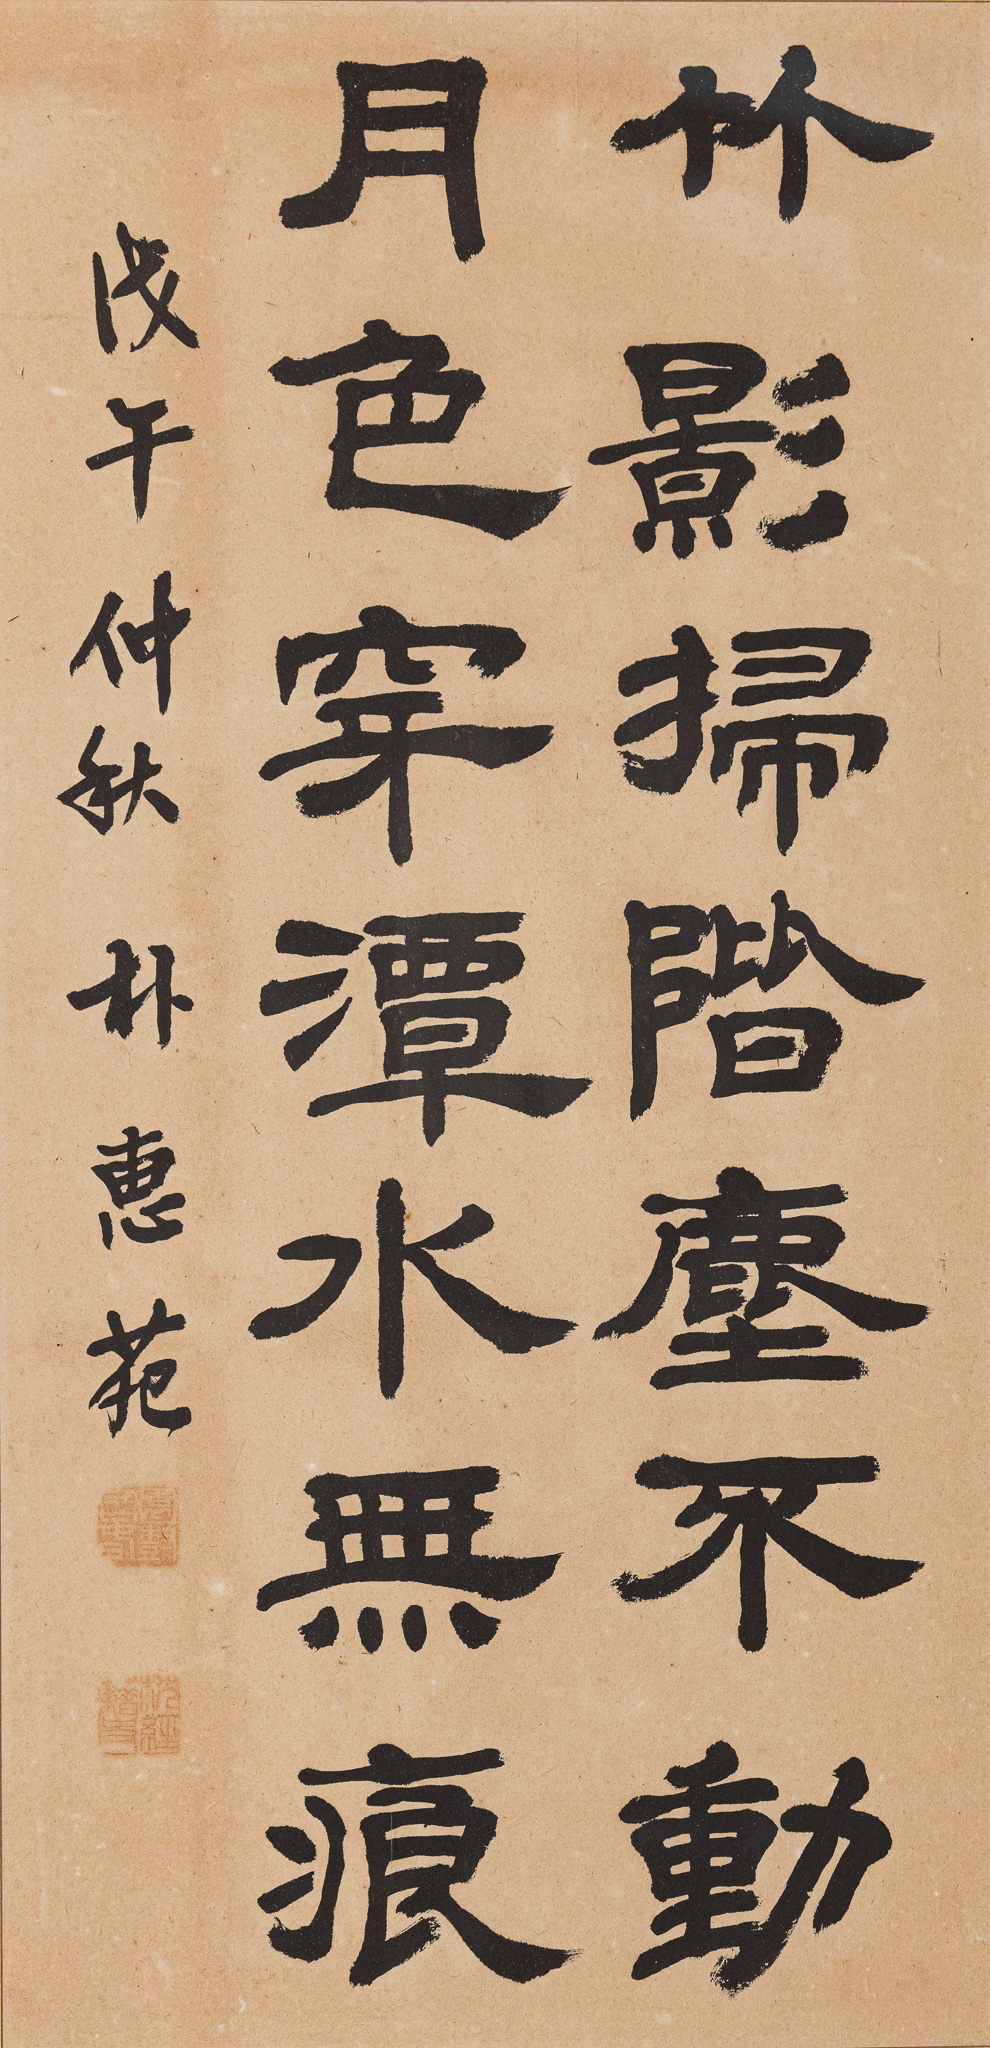 竹影掃階塵不動
月色穿潭水無痕
戊午仲秋 朴惠苑